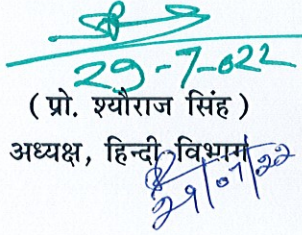 29-7-022
( प्रो. श्यौराज सिंह )
अध्यक्ष, हिन्दी विभाग
29/07/22